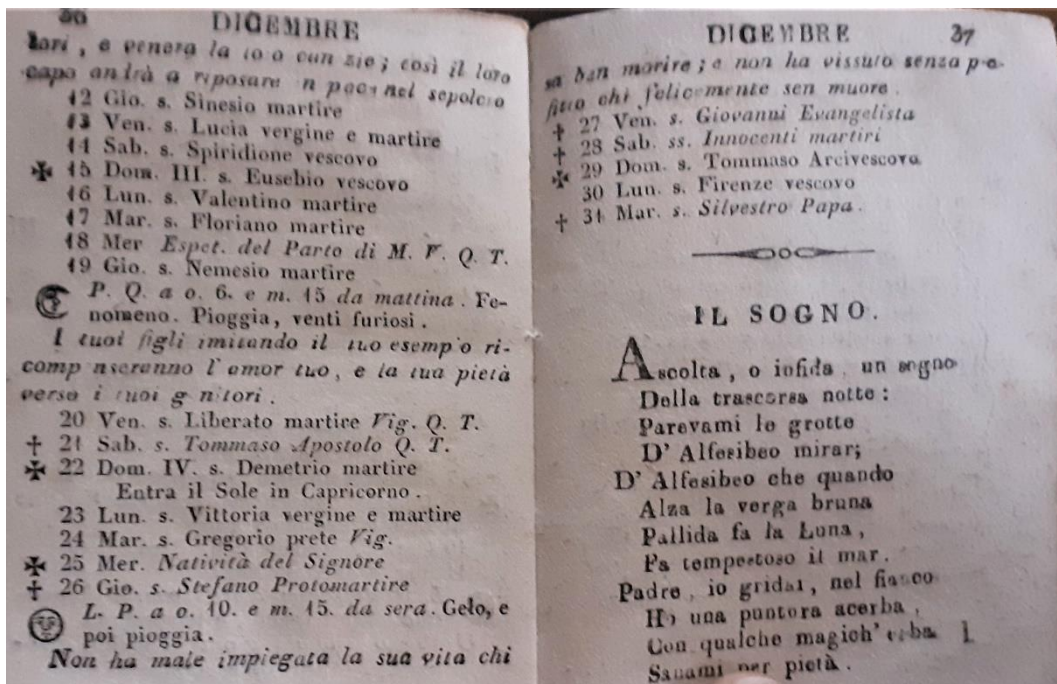 36
DICEMBRE
tori, e venera la loro canizie; così il loro
capo andrà a riposare in pace nel sepolcro
12 Gio. s. Sinesio martire
13 Ven. s. Lucia vergine e martire
14 Sab. s. Spiridione vescovo
✠ 15 Dom. III. s. Eusebio vescovo
16 Lun. s. Valentino martire
17 Mar. s. Floriano martire
18 Mer Espet. del Parto di M. V. Q. T.
19 Gio. s. Nemesio martire
P. Q. a o. 6. e m. 15 da mattina. Fe-
nomeno. Pioggia, venti furiosi.
I tuoi figli imitando il tuo esempio ri-
compenseranno l'amor tuo, e la tua pietà
verso i tuoi genitori.
20 Ven. s. Liberato martire Vig. Q. T.
† 21 Sab. s. Tommaso Apostolo Q. T.
✠ 22 Dom. IV. s. Demetrio martire
Entra il Sole in Capricorno.
23 Lun. s. Vittoria vergine e martire
24 Mar. s. Gregorio prete Vig.
✠ 25 Mer. Natività del Signore
† 26 Gio. s. Stefano Protomartire
L. P. a o. 10. e m. 15. da sera. Gelo, e
poi pioggia.
Non ha male impiegata la sua vita chi
DICEMBRE
37
sa ben morire; e non ha vissuto senza pro-
fitto chi felicemente sen muore.
† 27 Ven. s. Giovanni Evangelista
† 28 Sab. ss. Innocenti martiri
✠ 29 Dom. s. Tommaso Arcivescovo
30 Lun. s. Firenze vescovo
† 31 Mar. s. Silvestro Papa.
IL SOGNO.
Ascolta, o infida, un sogno
Della trascorsa notte:
Parevami le grotte
D' Alfesibeo mirar;
D' Alfesibeo che quando
Alza la verga bruna
Pallida fa la Luna,
Fa tempestoso il mar.
Padre, io gridai, nel fianco
Ho una puntora acerba,
Con qualche magich' erba
Sanami per pietà.